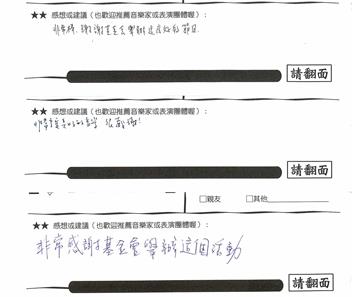 ★★ 感想或建議（也歡迎推薦音樂家或表演團體喔）：
非常棒，謝謝基金會舉辦這麼好的節目
請翻面
★★ 感想或建議（也歡迎推薦音樂家或表演團體喔）：
請翻面
□親友 □其他
★★ 感想或建議（也歡迎推薦音樂家或表演團體喔）：
非常感謝基金會舉辦這個活動
請翻面